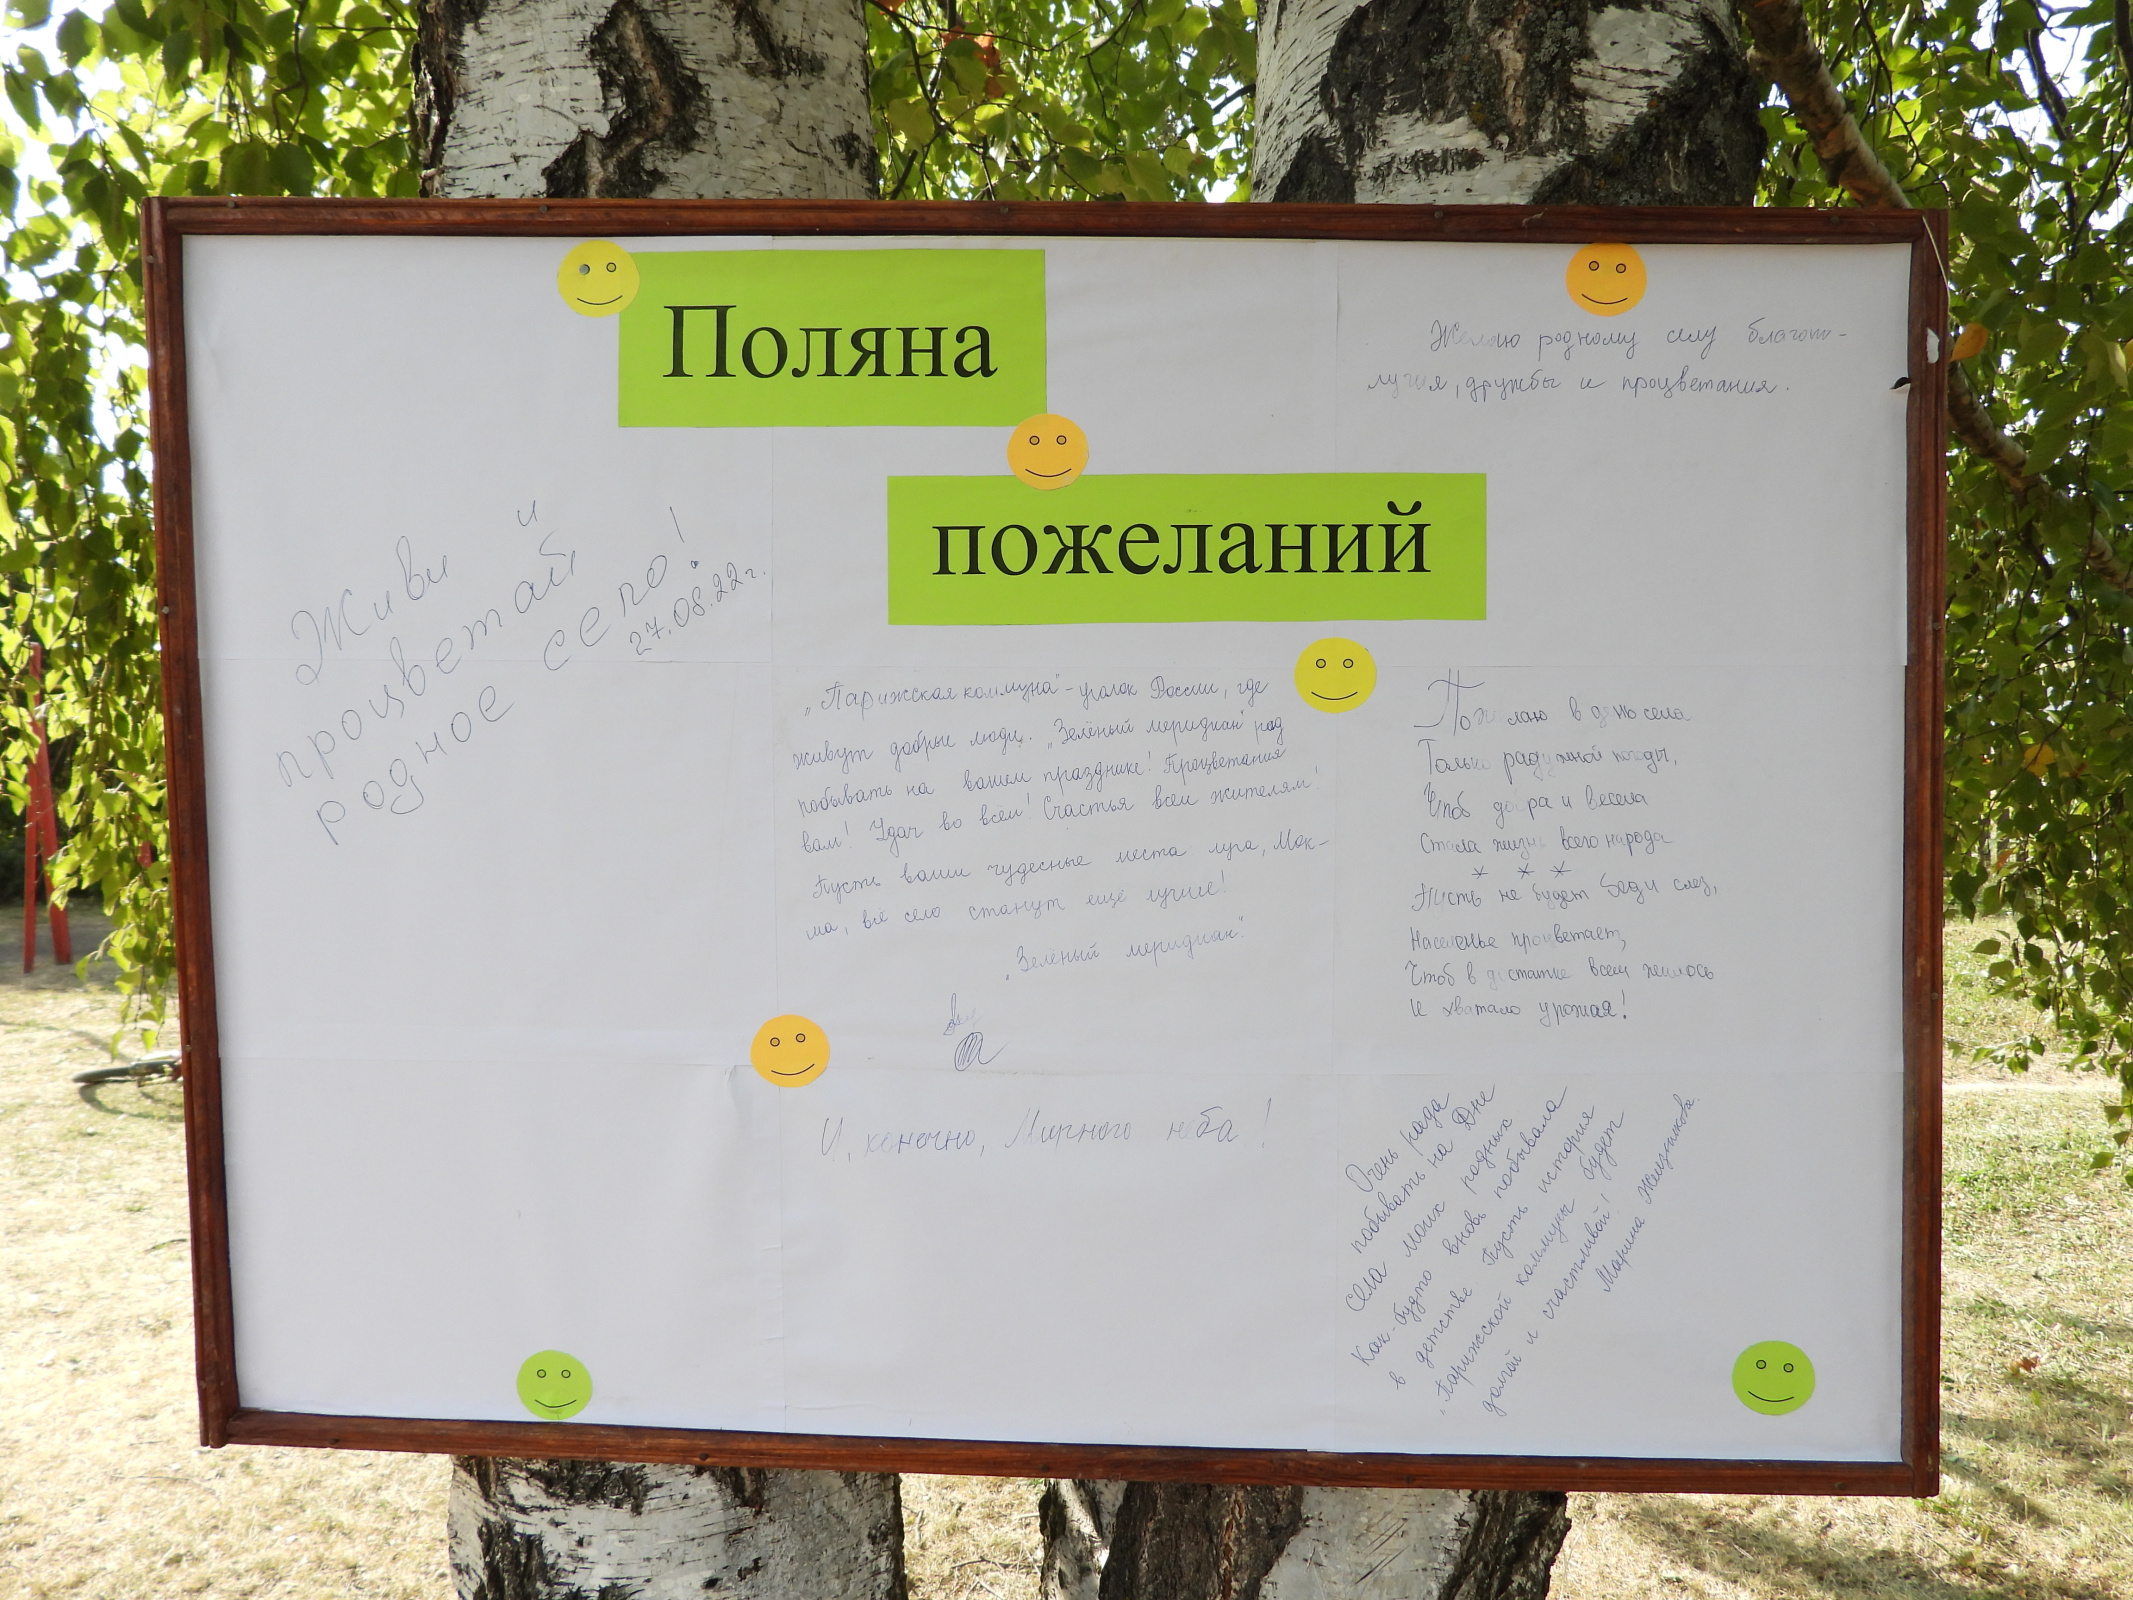 Поляна
пожеланий
Желаю родному селу благопо-
лучия, дружбы и процветания.
Живи и
процветай
родное село!
27.08.22 г.
„Парижская коммуна" - уголок России, где
живут добрые люди. „Зелёный меридиан" рад
побывать на вашем празднике! Процветания
вам! Удач во всём! Счастья всем жителям!
Пусть ваши чудесные места луга, Мок-
ша, всё село станут ещё лучше!
„Зелёный меридиан".
И, конечно, Мирного неба!
Пожелаю в день села
Только радужной погоды,
Чтоб добра и весела
Стала жизнь всего народа
* * *
Пусть не будет беды слез,
Населенье процветает,
Чтоб в достатке всем жилось
И хватало урожая!
Очень рада
побывать на Дне
села моих родных
Как-будто вновь побывала
в детстве. Пусть история
„Парижской коммуны будет
долгой и счастливой!
Марина Железникова.